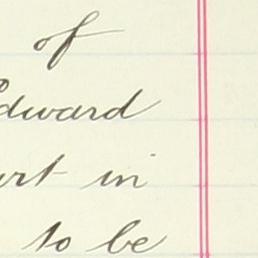 of
Edward
urt in
to be